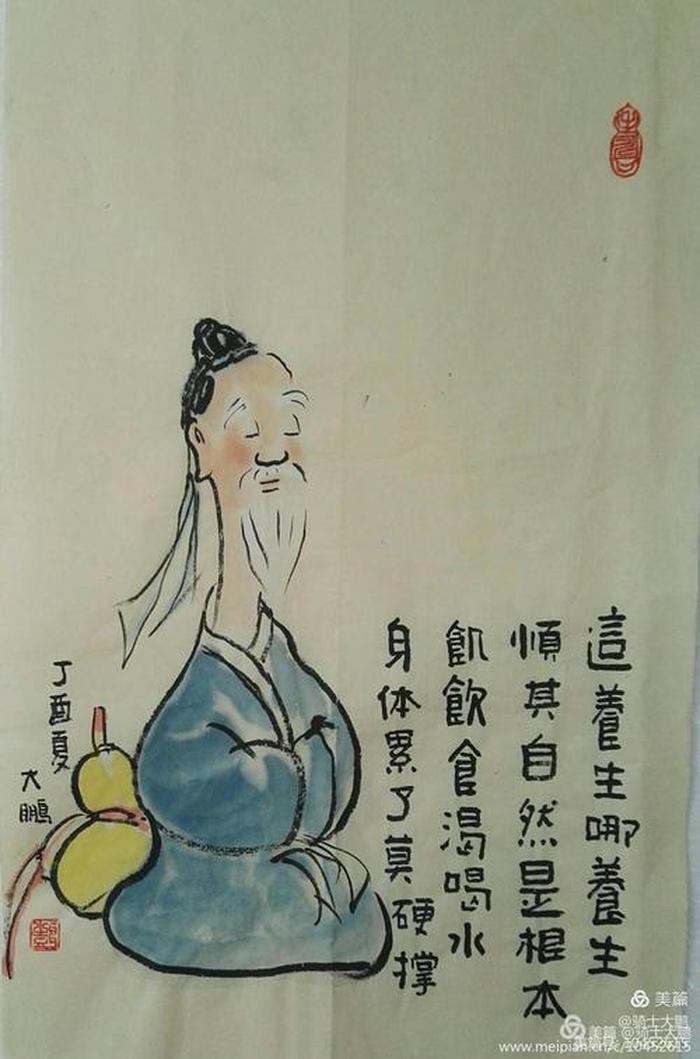 這養生哪養生
順其自然是根本
飢飲食渴喝水
身体累了莫硬撑
丁酉夏
大鵬
美篇
@骑士大鹏
美篇
@骑士大鹏
www.meipian.cn/c/10452615